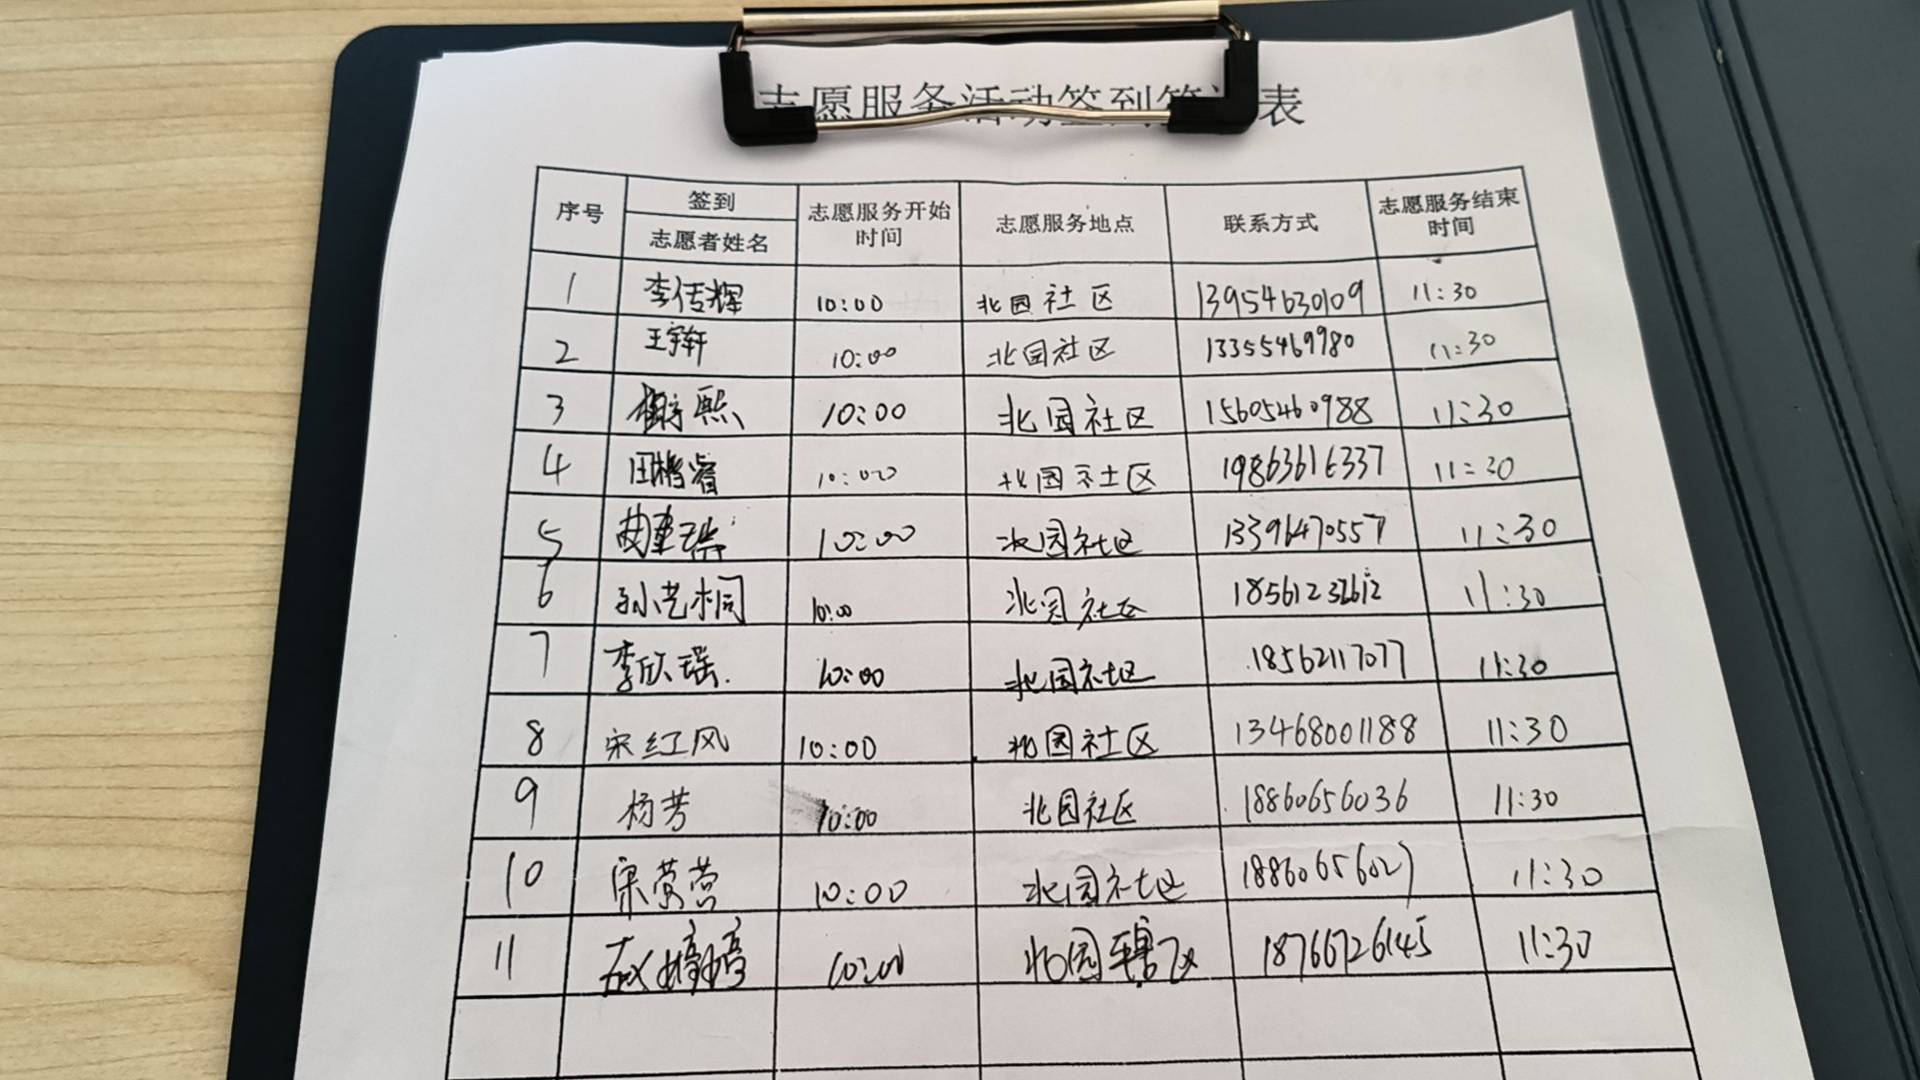 志愿服务活动签到签退表
序号 签到 志愿者姓名 志愿服务开始时间 志愿服务地点 联系方式 志愿服务结束时间
1 李传辉 10:00 北园社区 13954630109 11:30
2 王宇轩 10:00 北园社区 13355469980 11:30
3 熙 10:00 北园社区 15605460988 11:30
4 田 睿 10:00 北园社区 19863616337 11:30
5 瑞 10:00 北园社区 13396470557 11:30
6 孙艺桐 10:00 北园社区 18561232612 11:30
7 李欣瑶 10:00 北园社区 18562117077 11:30
8 宋红风 10:00 北园社区 13468001188 11:30
9 杨芳 10:00 北园社区 18860656036 11:30
10 宋莹莹 10:00 北园社区 18860656027 11:30
11 婷婷 10:00 北园 18766726145 11:30